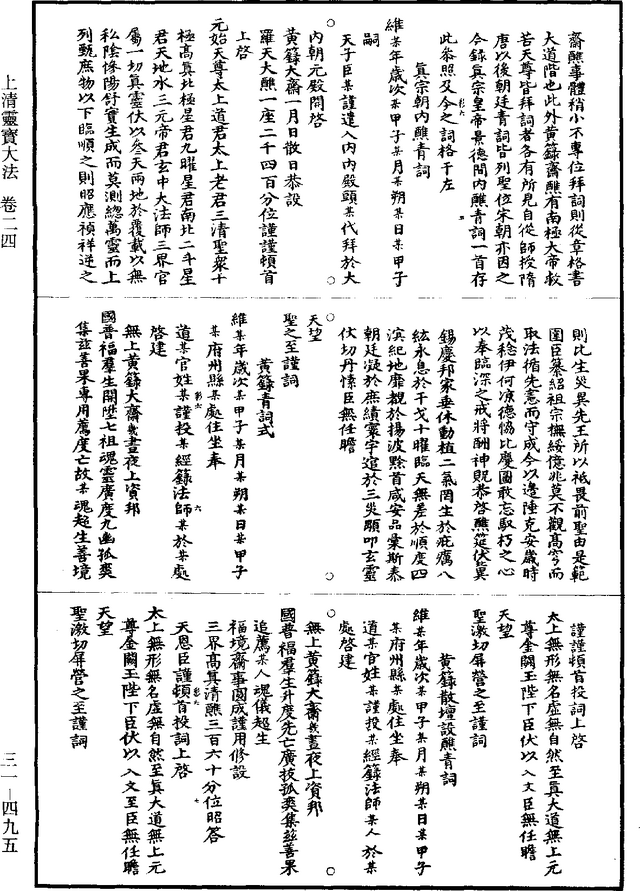 齋醮事體稍小不專位拜詞則從章格書
大道階也此外黃籙齋醮有南極大帝救
苦天尊皆拜詞者各有所見自從師授隋
唐以後朝廷青詞皆列聖位宋朝亦因之
今錄真宗皇帝景德間內醮青詞一首存
此叅照及今之詞格于左
真宗朝內醮青詞
維某年歲次某甲子某月某朔某日某甲子
嗣
天子臣某謹遣入內內殿頭某代拜於大
內朝元殿開啓
黃籙大齋一月日散日恭設
羅天大醮一座二千四百分位謹謹頓首
上啓
元始天尊太上道君太上老君三清聖衆十
極高真北極星君九曜星君南北二斗星
君天地水三元帝君玄中大法師三界官
屬一切真靈伏以叁天兩地於覆載以無
私陰慘陽舒寶生成而莫測總萬靈而上
列甄庶物以下臨順之則昭應禎祥逆之
則比生災異先王所以祗畏前聖由是範
圍臣纂紹祖宗撫綏億兆莫不觀髙穹而
取法循先憲而守成今以邊陲克安歲時
茂稔伊何凉德恊比慶圖敢忘馭朽之心
以奉臨深之戒將酬神貺恭啓醮筵伏冀
錫慶邦家垂休動植二氣罔生於疵癘八
紘永息於干戈十曜臨天無差於順度四
溟紀地靡覩於揚波黔首咸安品彙斯泰
朝廷凝於庶績寰宇逭於三災顒叩玄靈
伏切丹悃臣無任瞻
天望
聖之至謹詞
黃籙青詞式
維某年歲次某甲子某月某朔某日某甲子
某府州縣某處住坐奉
道某官姓某謹投某經籙法師某於某處
啓建
無上黃籙大齋幾晝夜上資邦
國普福羣生開陞七祖魂靈廣度九幽孤爽
集兹善果專用薦度亡故某魂超生善境
謹謹頓首投詞上啓
太上無形無名虛無自然至真大道無上元
尊金闕玉陛下臣伏以入文臣無任瞻
天望
聖激切屏營之至謹詞
黃籙散壇設醮青詞
維某年歲次某甲子某月某朔某日某甲子
某府州縣某處住坐奉
道某官姓某謹投某經籙法師某人於某
處啓建
無上黃籙大齋幾晝夜上資邦
國普福羣生升度先亡廣拔孤爽集兹善果
追薦某人魂儀超生
福境齋事圓成謹用修設
三界高真清醮三百六十分位昭答
天恩臣謹頓首投詞上啓
太上無形無名虛無自然至真大道無上元
尊金闕玉陛下臣伏以入文至臣無任瞻
天望
聖激切屏營之至謹詞
上清靈寶大法 卷二四
三一—四九五